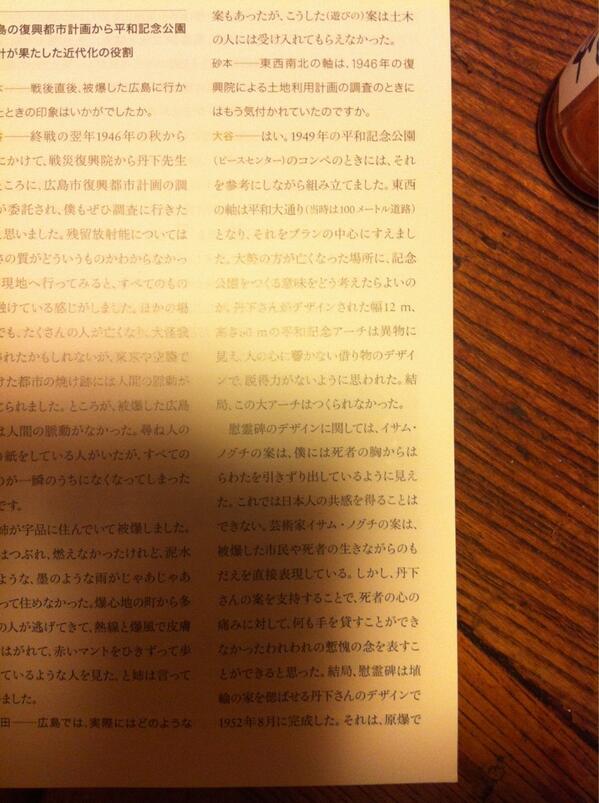 島の復興都市計画から平和記念公園
計が果たした近代化の役割
本――戦後直後、被爆した広島に行か
たときの印象はいかがでしたか。
谷――終戦の翌年1946年の秋から
にかけて、戦災復興院から丹下先生
ところに、広島市復興都市計画の調
が委託され、僕もぜひ調査に行きた
思いました。残留放射能については
さの質がどういうものかわからなかっ
現地へ行ってみると、すべてのもの
融けている感じがしました。ほかの場
でも、たくさんの人が亡くなり、大怪我
されたかもしれないが、東京や空襲で
けた都市の焼け跡には人間の脈動が
じられました。ところが、被爆した広島
は人間の脈動がなかった。尋ね人の
り紙をしている人がいたが、すべての
のが一瞬のうちになくなってしまった
です。
姉が宇品に住んでいて被爆しました。
はつぶれ、燃えなかったけれど、泥水
ような、墨のような雨がじゃあじゃあ
って住めなかった。爆心地の町から多
の人が逃げてきて、熱線と爆風で皮膚
はがれて、赤いマントをひきずって歩
ているような人を見た。と姉は言って
ました。
田――広島では、実際にはどのような
案もあったが、こうした(遊びの)案は土木
の人には受け入れてもらえなかった。
砂本――東西南北の軸は、1946年の復
興院による土地利用計画の調査のときに
はもう気付かれていたのですか。
大谷――はい。1949年の平和記念公園
(ピースセンター)のコンペのときには、それ
を参考にしながら組み立てました。東西
の軸は平和大通り(当時は100メートル道路)
となり、それをプランの中心にすえまし
た。大勢の方が亡くなった場所に、記念
公園をつくる意味をどう考えたらよいの
か。丹下さんがデザインされた幅12 m、
高さ m の平和記念アーチは異物に
見え、人の心に響かない借り物のデザイ
ンで、説得力がないように思われた。結
局、この大アーチはつくられなかった。
慰霊碑のデザインに関しては、イサム・
ノグチの案は、僕には死者の胸からは
らわたを引きずり出しているように見え
た。これでは日本人の共感を得ることは
できない。芸術家イサム・ノグチの案は、
被爆した市民や死者の生きながらのも
だえを直接表現している。しかし、丹下
さんの案を支持することで、死者の心の
痛みに対して、何も手を貸すことができ
なかったわれわれの慙愧の念を表すこ
とができると思った。結局、慰霊碑は埴
輪の家を偲ばせる丹下さんのデザインで
1952年8月に完成した。それは、原爆で